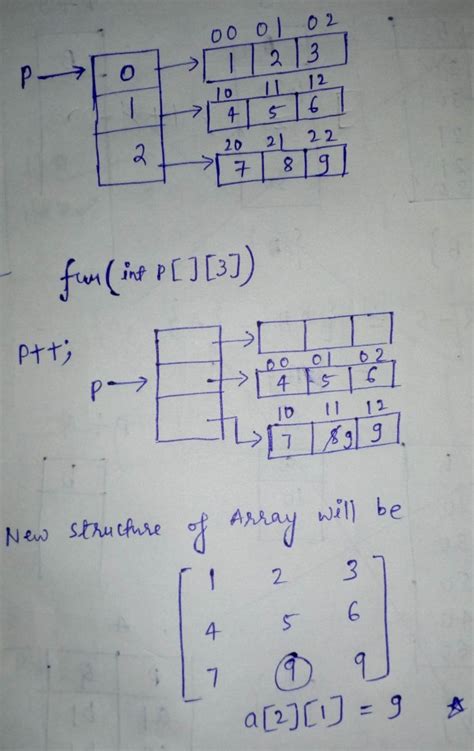 00 01 02
P → 0 → 1 2 3
10 11 12
1 → 4 5 6
20 21 22
2 → 7 8 9
fun(int P[][3])
P++;
00 01 02
P → → 4 5 6
10 11 12
7 8 9 9
New structure of Array will be
1 2 3
4 5 6
7 9 9
a[2][1] = 9 ☆